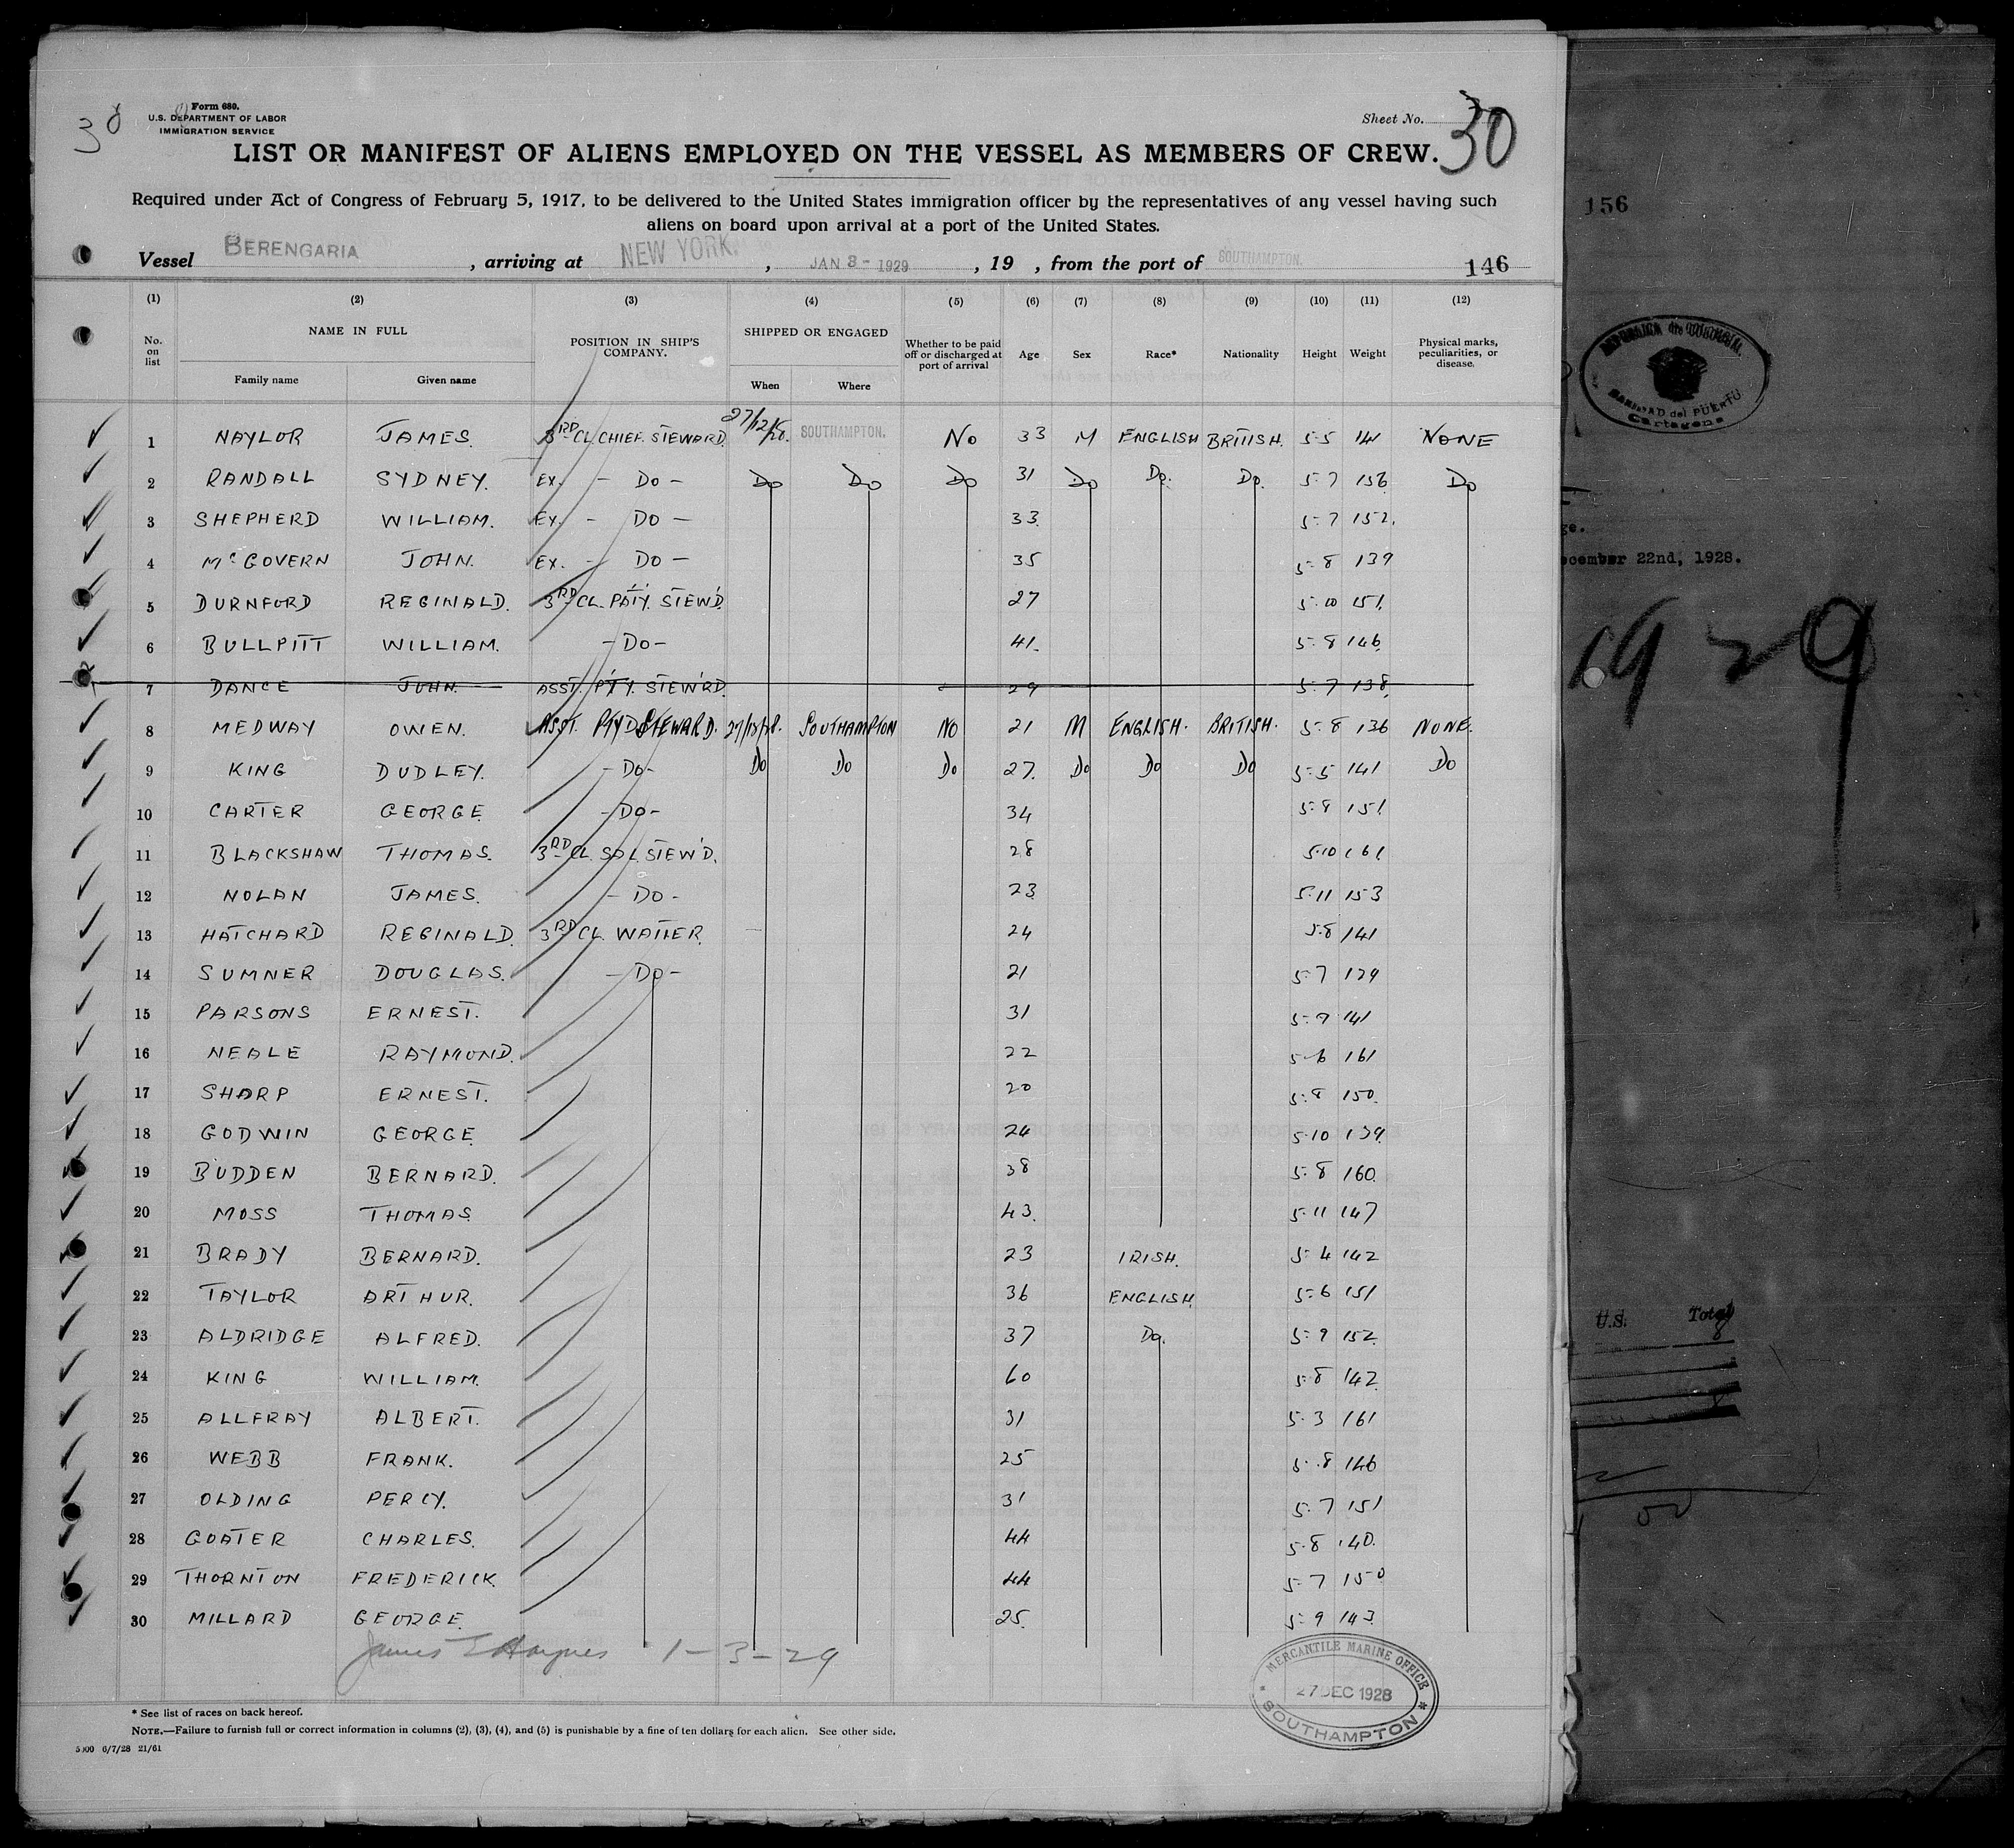 38
Form 680.
U.S. DEPARTMENT OF LABOR
IMMIGRATION SERVICE
Sheet No. 30
LIST OR MANIFEST OF ALIENS EMPLOYED ON THE VESSEL AS MEMBERS OF CREW.
Required under Act of Congress of February 5, 1917, to be delivered to the United States immigration officer by the representatives of any vessel having such
aliens on board upon arrival at a port of the United States.
Vessel BERENGARIA, arriving at NEW YORK., JAN 3 - 1929, 19 , from the port of SOUTHAMPTON. 146
(1) (2) (3) (4) (5) (6) (7) (8) (9) (10) (11) (12)
No. on list NAME IN FULL POSITION IN SHIP'S COMPANY. SHIPPED OR ENGAGED Whether to be paid off or discharged at port of arrival Age Sex Race* Nationality Height Weight Physical marks, peculiarities, or disease.
Family name Given name When Where
1 NAYLOR JAMES. 3RD CL. CHIEF. STEWARD. 27/12/28. SOUTHAMPTON. No 33 M ENGLISH BRITISH. 5-5 141 NONE
2 RANDALL SYDNEY. Ex. - Do - Do Do Do 31 Do Do. Do. 5-7 156 Do
3 SHEPHERD WILLIAM. Ex. - Do - 33. 5-7 152.
4 McGOVERN JOHN. Ex. - Do - 35 5-8 139
5 DURNFORD REGINALD. 3RD CL. PATY. STEW'D. 27 5-10 151.
6 BULLPITT WILLIAM. - Do - 41. 5-8 146.
7 DANCE JOHN. ASST. PTY. STEW'RD. 29 5-7 138.
8 MEDWAY OWEN. ASST. PTYD STEWARD. 27/12/28. SOUTHAMPTON NO 21 M ENGLISH. BRITISH. 5-8 136 NONE.
9 KING DUDLEY. - Do - Do Do Do 27. Do Do Do 5-5 141 Do
10 CARTER GEORGE - Do - 34 5-8 151.
11 BLACKSHAW THOMAS. 3RD CL. SAL STEW'D. 28 5-10 161
12 NOLAN JAMES. - Do - 23 5-11 153
13 HATCHARD REGINALD. 3RD CL. WAITER. 24 5-8 141
14 SUMNER DOUGLAS. - Do - 21 5-7 139
15 PARSONS ERNEST. 31 5-9 141
16 NEALE RAYMOND. 22 5-6 161
17 SHARP ERNEST. 20 5-8 150.
18 GODWIN GEORGE. 24 5-10 139.
19 BUDDEN BERNARD. 38 5-8 160.
20 MOSS THOMAS 43. 5-11 147
21 BRADY BERNARD. 23 IRISH. 5-4 142
22 TAYLOR ARTHUR. 36 ENGLISH. 5-6 151
23 ALDRIDGE ALFRED. 37 Do. 5-9 152.
24 KING WILLIAM. 60 5-8 142.
25 ALLFRAY ALBERT. 31 5-3 161
26 WEBB FRANK. 25 5-8 146
27 OLDING PERCY. 31 5-7 151
28 GOATER CHARLES. 44 5-8 140.
29 THORNTON FREDERICK. 44 5-7 150
30 MILLARD GEORGE. 25. 5-9 143.
James Haynes 1-3-29
MERCANTILE MARINE OFFICE
27 DEC 1928
SOUTHAMPTON
* See list of races on back hereof.
NOTE.—Failure to furnish full or correct information in columns (2), (3), (4), and (5) is punishable by a fine of ten dollars for each alien. See other side.
5000 6/7/28 21/61
156
SANIDAD del PUERTO
Cartagena
ge.
ecember 22nd, 1928.
1929
U.S. Total
8